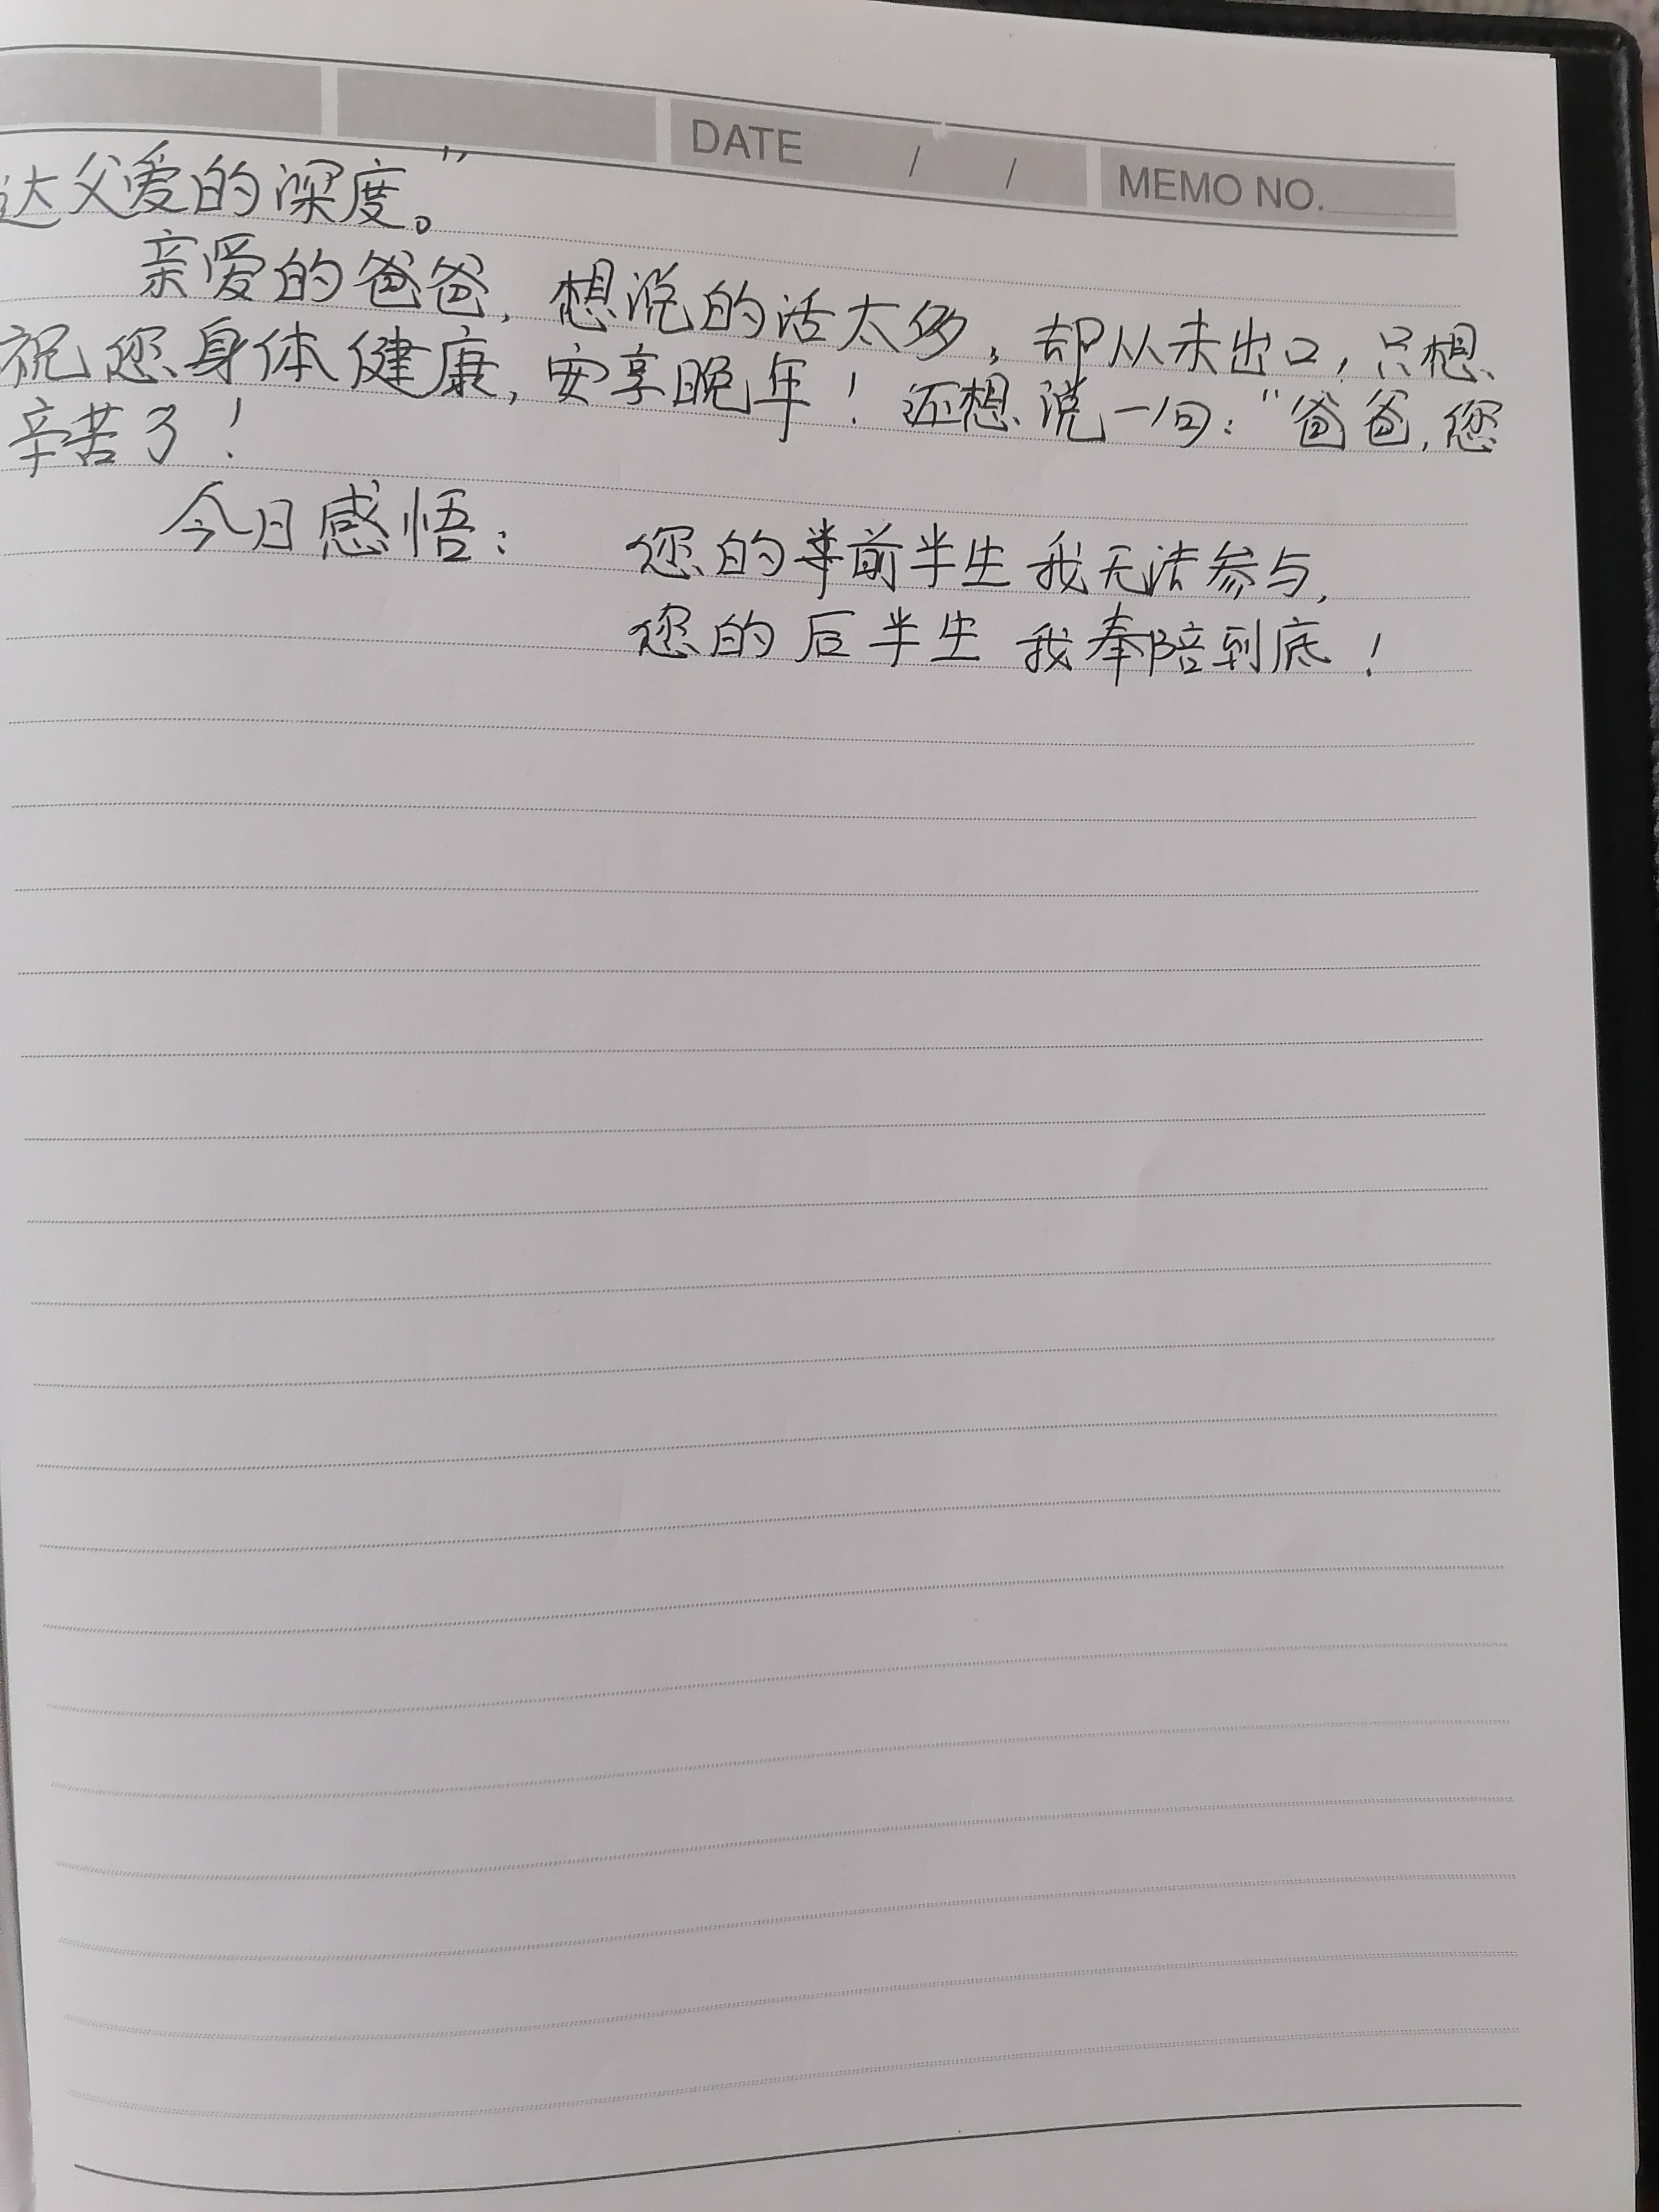 DATE / / MEMO NO.
达父爱的深度。”
亲爱的爸爸，想说的话太多，却从未出口，只想
祝您身体健康，安享晚年！还想说一句：“爸爸，您
辛苦了！
今日感悟： 您的前半生我无法参与，
您的后半生 我奉陪到底！